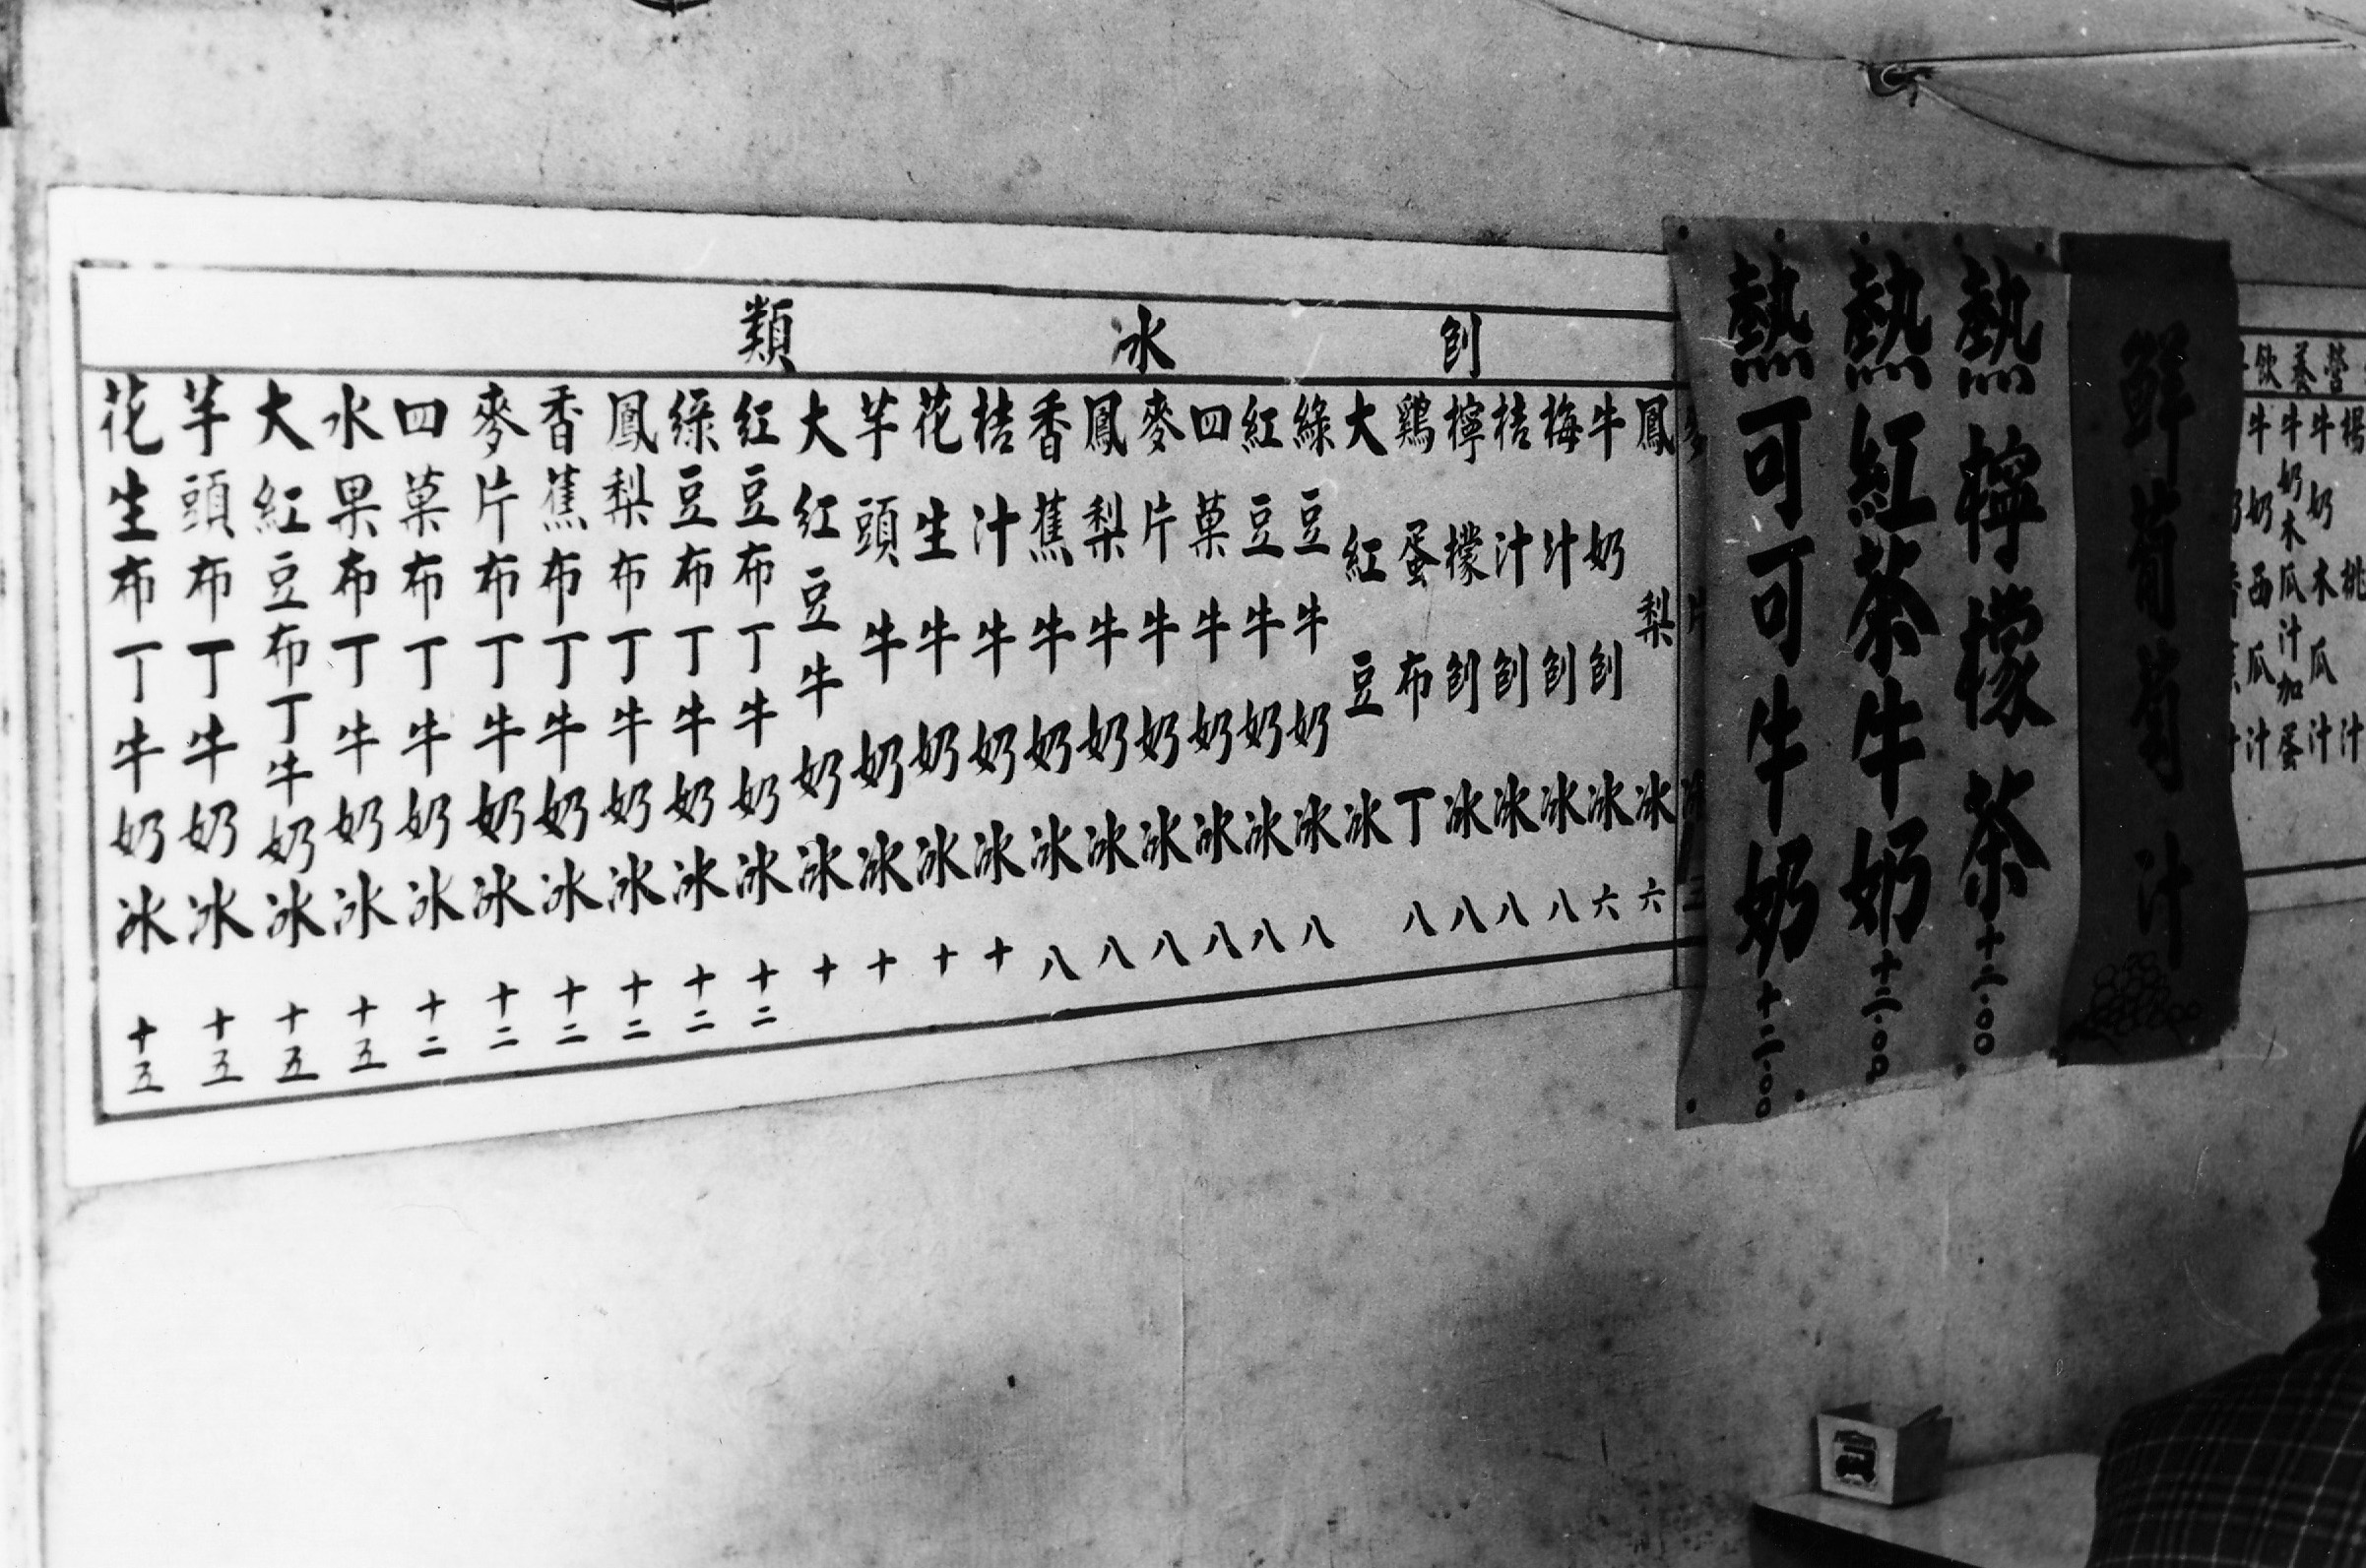 營養飲
楊桃汁
牛奶木瓜汁
牛奶木瓜汁加蛋
牛奶西瓜汁
鮮葡萄汁
熱檸檬茶十二.00
熱紅茶牛奶十二.00
熱可可牛奶十二.00
刨冰類
鳳梨冰六
牛奶刨冰六
梅汁刨冰八
桔汁刨冰八
檸檬刨冰八
鶏蛋布丁八
大紅豆冰
綠豆牛奶冰八
紅豆牛奶冰八
四菓牛奶冰八
麥片牛奶冰八
鳳梨牛奶冰八
香蕉牛奶冰八
桔汁牛奶冰十
花生牛奶冰十
芋頭牛奶冰十
大紅豆牛奶冰十
紅豆布丁牛奶冰十二
綠豆布丁牛奶冰十二
鳳梨布丁牛奶冰十二
香蕉布丁牛奶冰十二
麥片布丁牛奶冰十二
四菓布丁牛奶冰十二
水果布丁牛奶冰十五
大紅豆布丁牛奶冰十五
芋頭布丁牛奶冰十五
花生布丁牛奶冰十五